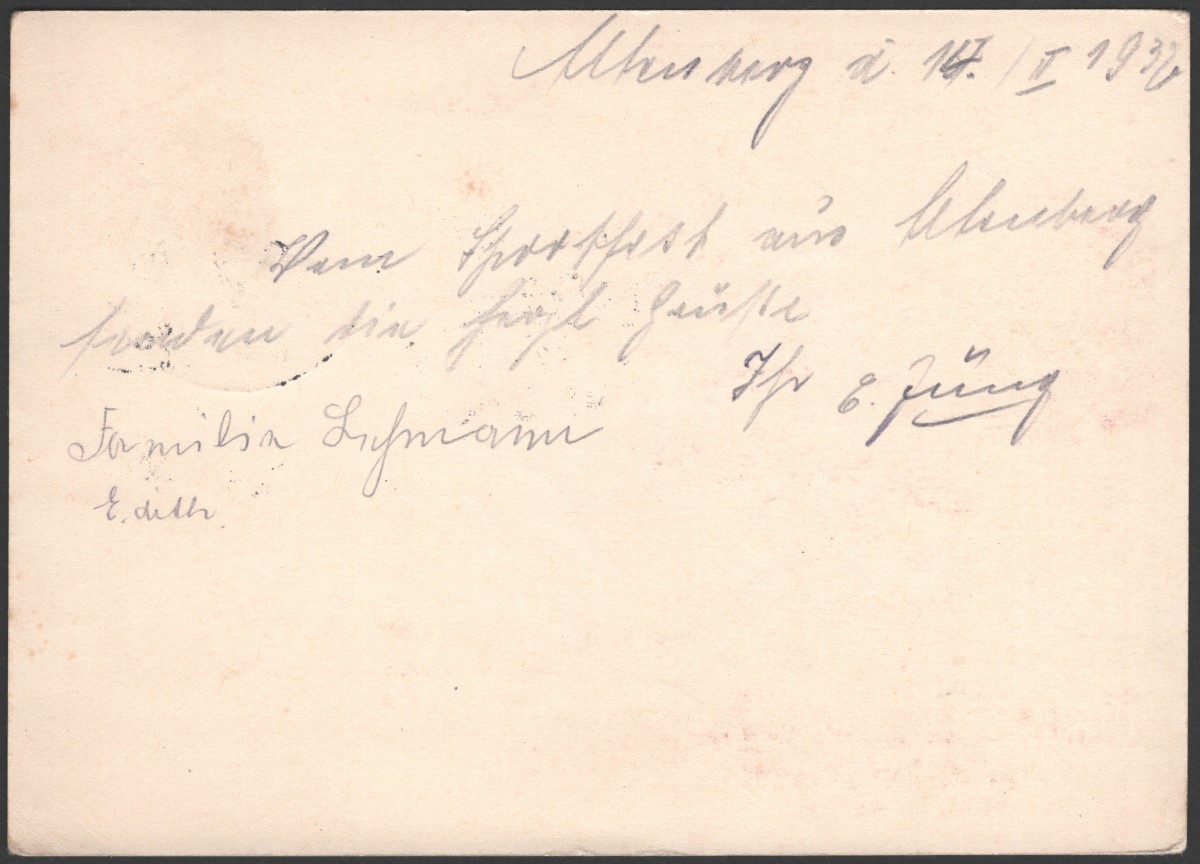 Altenberg d. 14. / II 1937
Vom Sportfest aus Altenberg
senden die herzl Grüße
Ihr E. Jung
Familie Lehmann
Edith.